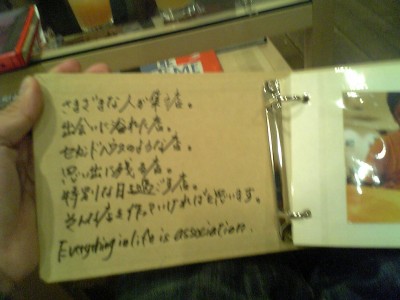 さまざまな人が集う店。
出会いに溢れた店。
セカンドハウスのような店。
思い出に残る店。
特別な日に過ごす店。
そんな店を作っていければと思います。
Everything in life is association.